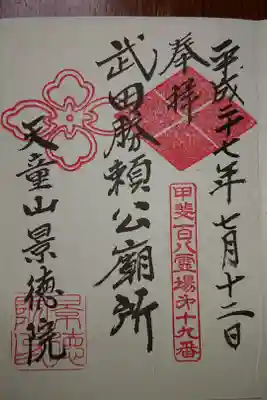 平成二十七年七月十二日
奉拝
甲斐百八霊場第十九番
武田勝頼公廟所
天童山景徳院